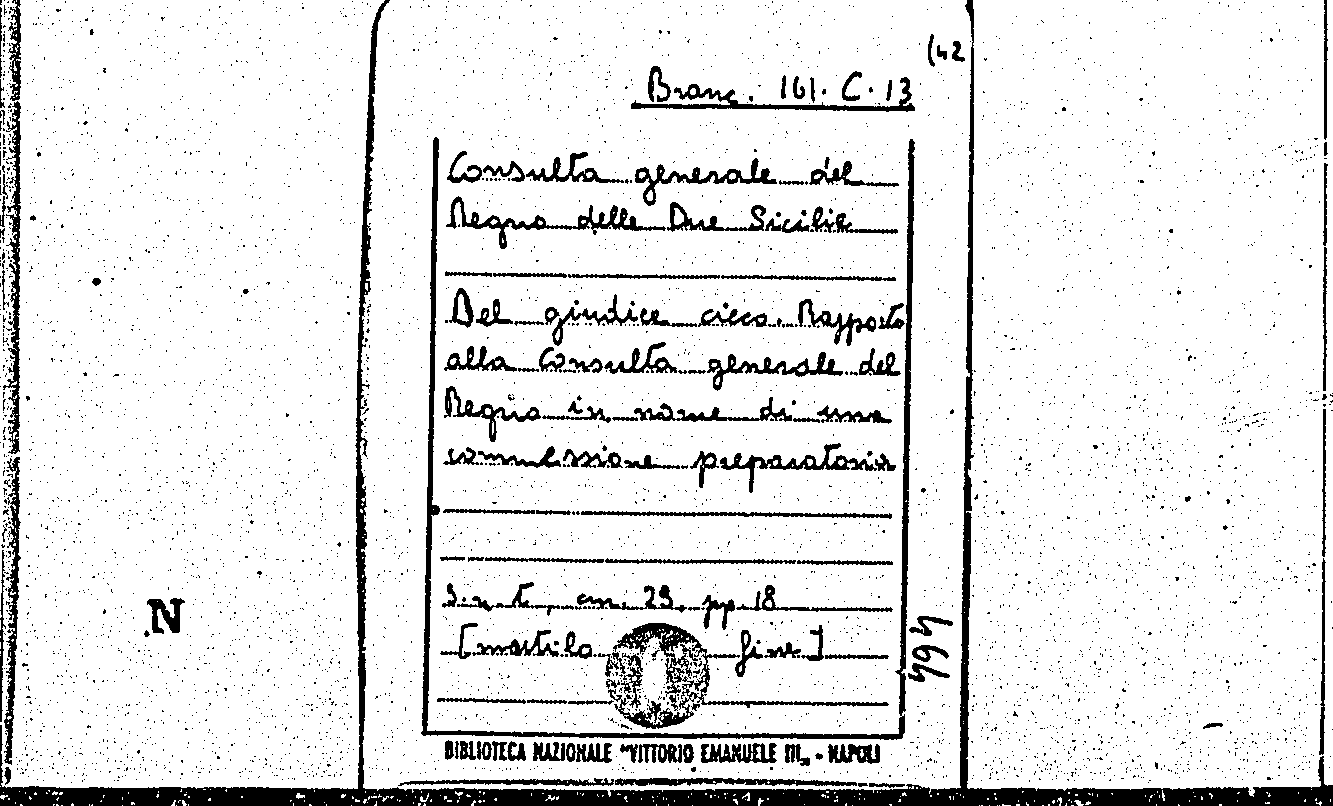 (42
Branc. 161. C. 13
Consulta generale del
Regno delle Due Sicilie
Del giudice cieco. Rapporto
alla Consulta generale del
Regno in nome di una
commessione preparatoria
s.n.t., cm. 29, pp. 18
[mutilo fine]
N
BIBLIOTECA NAZIONALE "VITTORIO EMANUELE III„ - NAPOLI